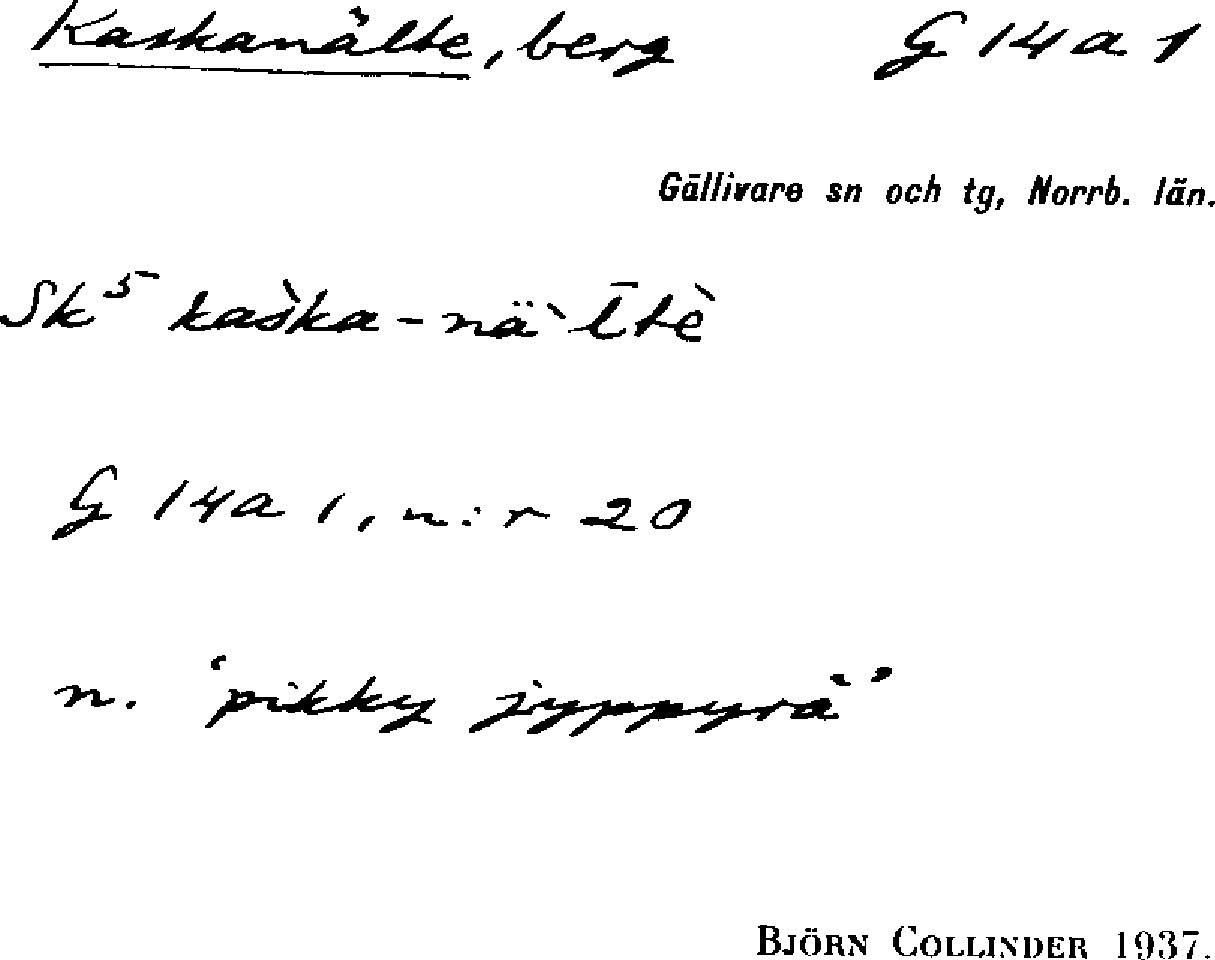 Kaskanälte, berg G 14 a 1
Gällivare sn och tg, Norrb. län.
Sk⁵ kaš̀ka-nä`l̄tè
G 14a 1, n:r 20
n. 'pikky jyppyrä'
BJÖRN COLLINDER 1937.